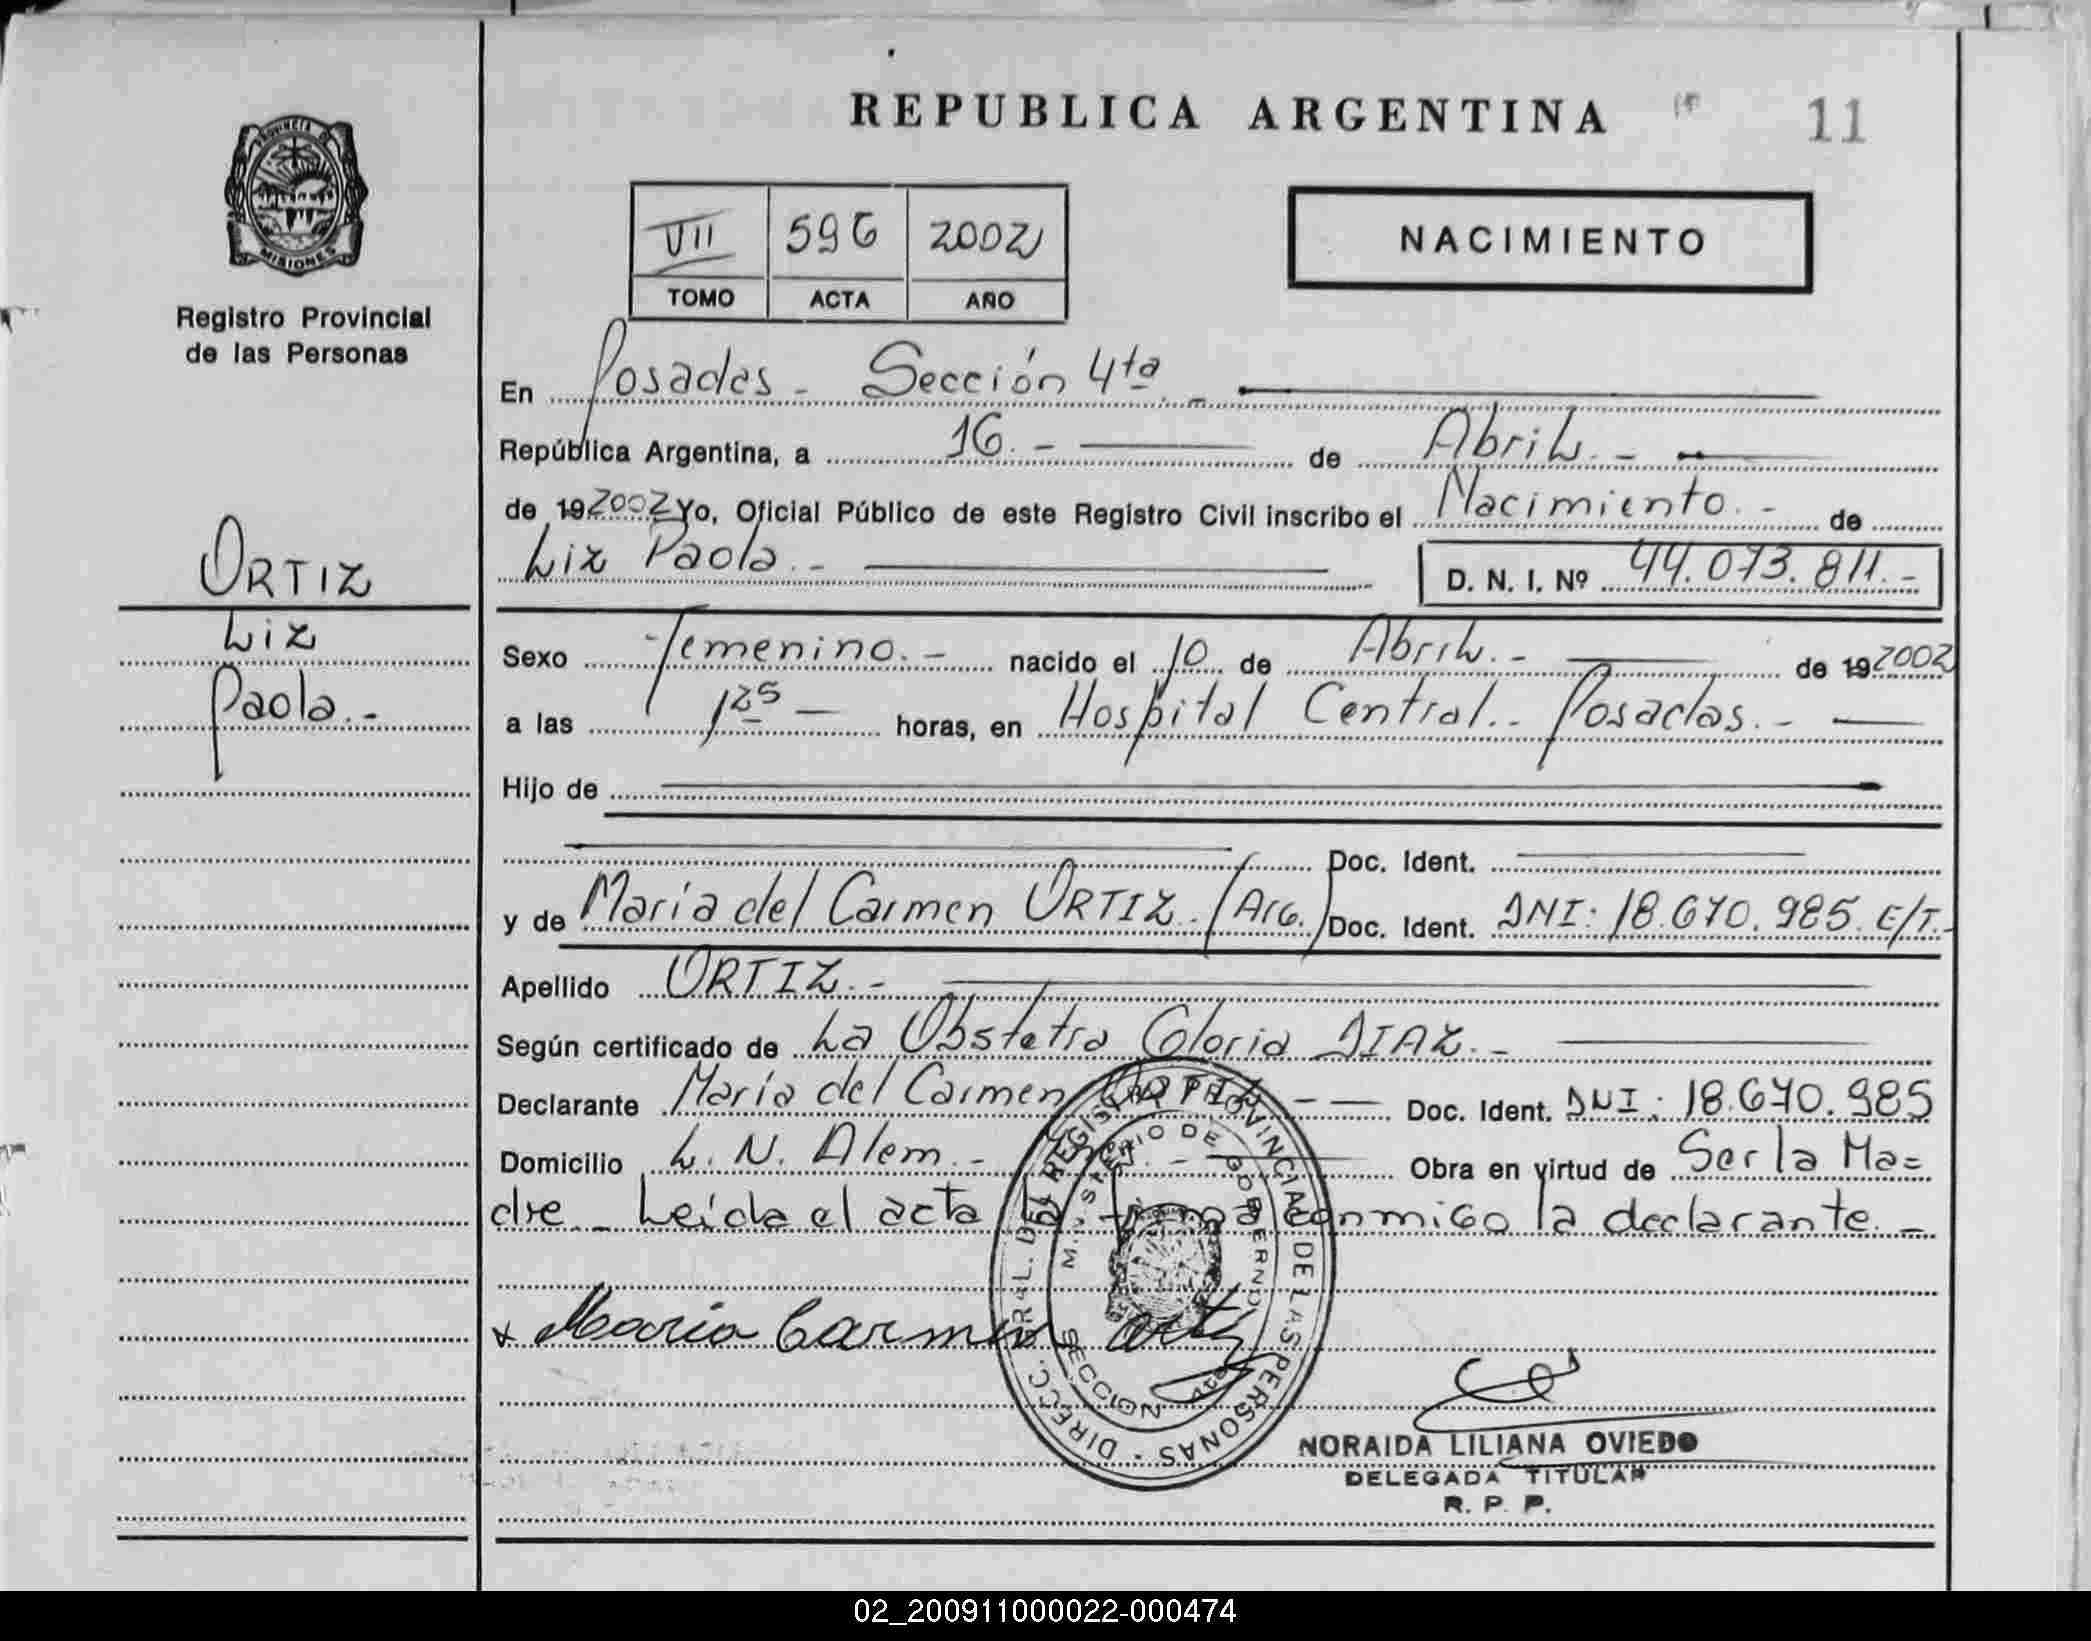 REPUBLICA ARGENTINA
11
PROVINCIA DE
MISIONES
Registro Provincial
de las Personas
VII 596 2002
TOMO ACTA AÑO
NACIMIENTO
En Posadas - Sección 4ta. -
República Argentina, a 16. - de Abril. -
de 19 2002 Yo, Oficial Público de este Registro Civil inscribo el Nacimiento. - de
Liz Paola. - D. N. I. Nº 44.073.811. -
ORTIZ
Liz
Paola. -
Sexo Femenino. - nacido el 10 de Abril. - de 19 2002
a las 1 25 - horas, en Hospital Central. - Posadas. -
Hijo de
Doc. Ident.
y de María del Carmen ORTIZ. (Arg.) Doc. Ident. DNI: 18.670.985. E/T. -
Apellido ORTIZ. -
Según certificado de La Obstetra Gloria DIAZ. -
Declarante María del Carmen ORTIZ - Doc. Ident. DNI: 18.670.985
Domicilio L. N. Alem. - Obra en virtud de Ser la Ma=
dre. - Leída el acta la firma conmigo la declarante. -
Maria Carmen Ortiz
DIRECC. GRAL. DEL REGISTRO PROVINCIAL DE LAS PERSONAS
MINISTERIO DE GOBIERNO
SECCION 4ta
NORAIDA LILIANA OVIEDO
DELEGADA TITULAR
R. P. P.
02_200911000022-000474